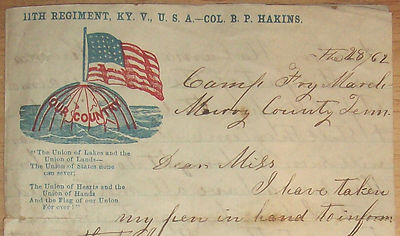 11TH REGIMENT, KY. V., U. S. A.—COL. B. P. HAKINS.
the 28 / 62
Camp Fry March
Murry County Tenn.
OUR COUNTRY
"The Union of Lakes and the
Union of Lands—
The Union of States none
can sever;
The Union of Hearts and the
Union of Hands
And the Flag of our Union
For ever!"
Dear Miss
I have taken
my pen in hand to inform